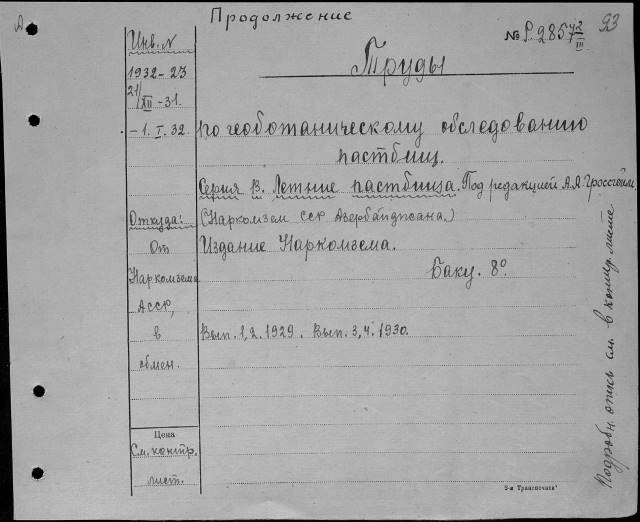 Продолжение
93
№ Р285
Инв. N
Труды
1932-23
21/XII-31.
-1.I.32.
по геоботаническому обследованию
пастбищ.
Серия В. Летние пастбища. Под редакцией А.А. Гроссгейм.
Откуда:
(Наркомзем сср Азербайджана.)
От
Издание Наркомзема.
Наркомзема
Баку. 8º
АССР,
в
Вып. 1,2. 1929. Вып. 3,4. 1930.
обмен.
Цена
См. контр.
лист.
2-я Транспечать
Подробн. опись см. в контр. листе